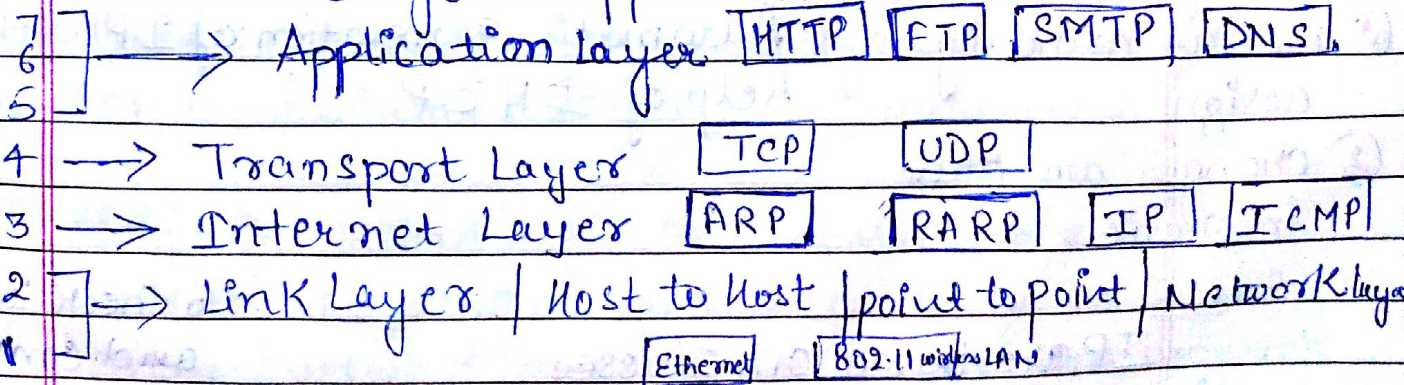 7 → Application Layer HTTP FTP SMTP DNS
6
5
4 → Transport Layer TCP UDP
3 → Internet Layer ARP RARP IP ICMP
2 → Link Layer | Host to Host | point to point | Network layer
1 Ethernet 802.11 wireless LAN